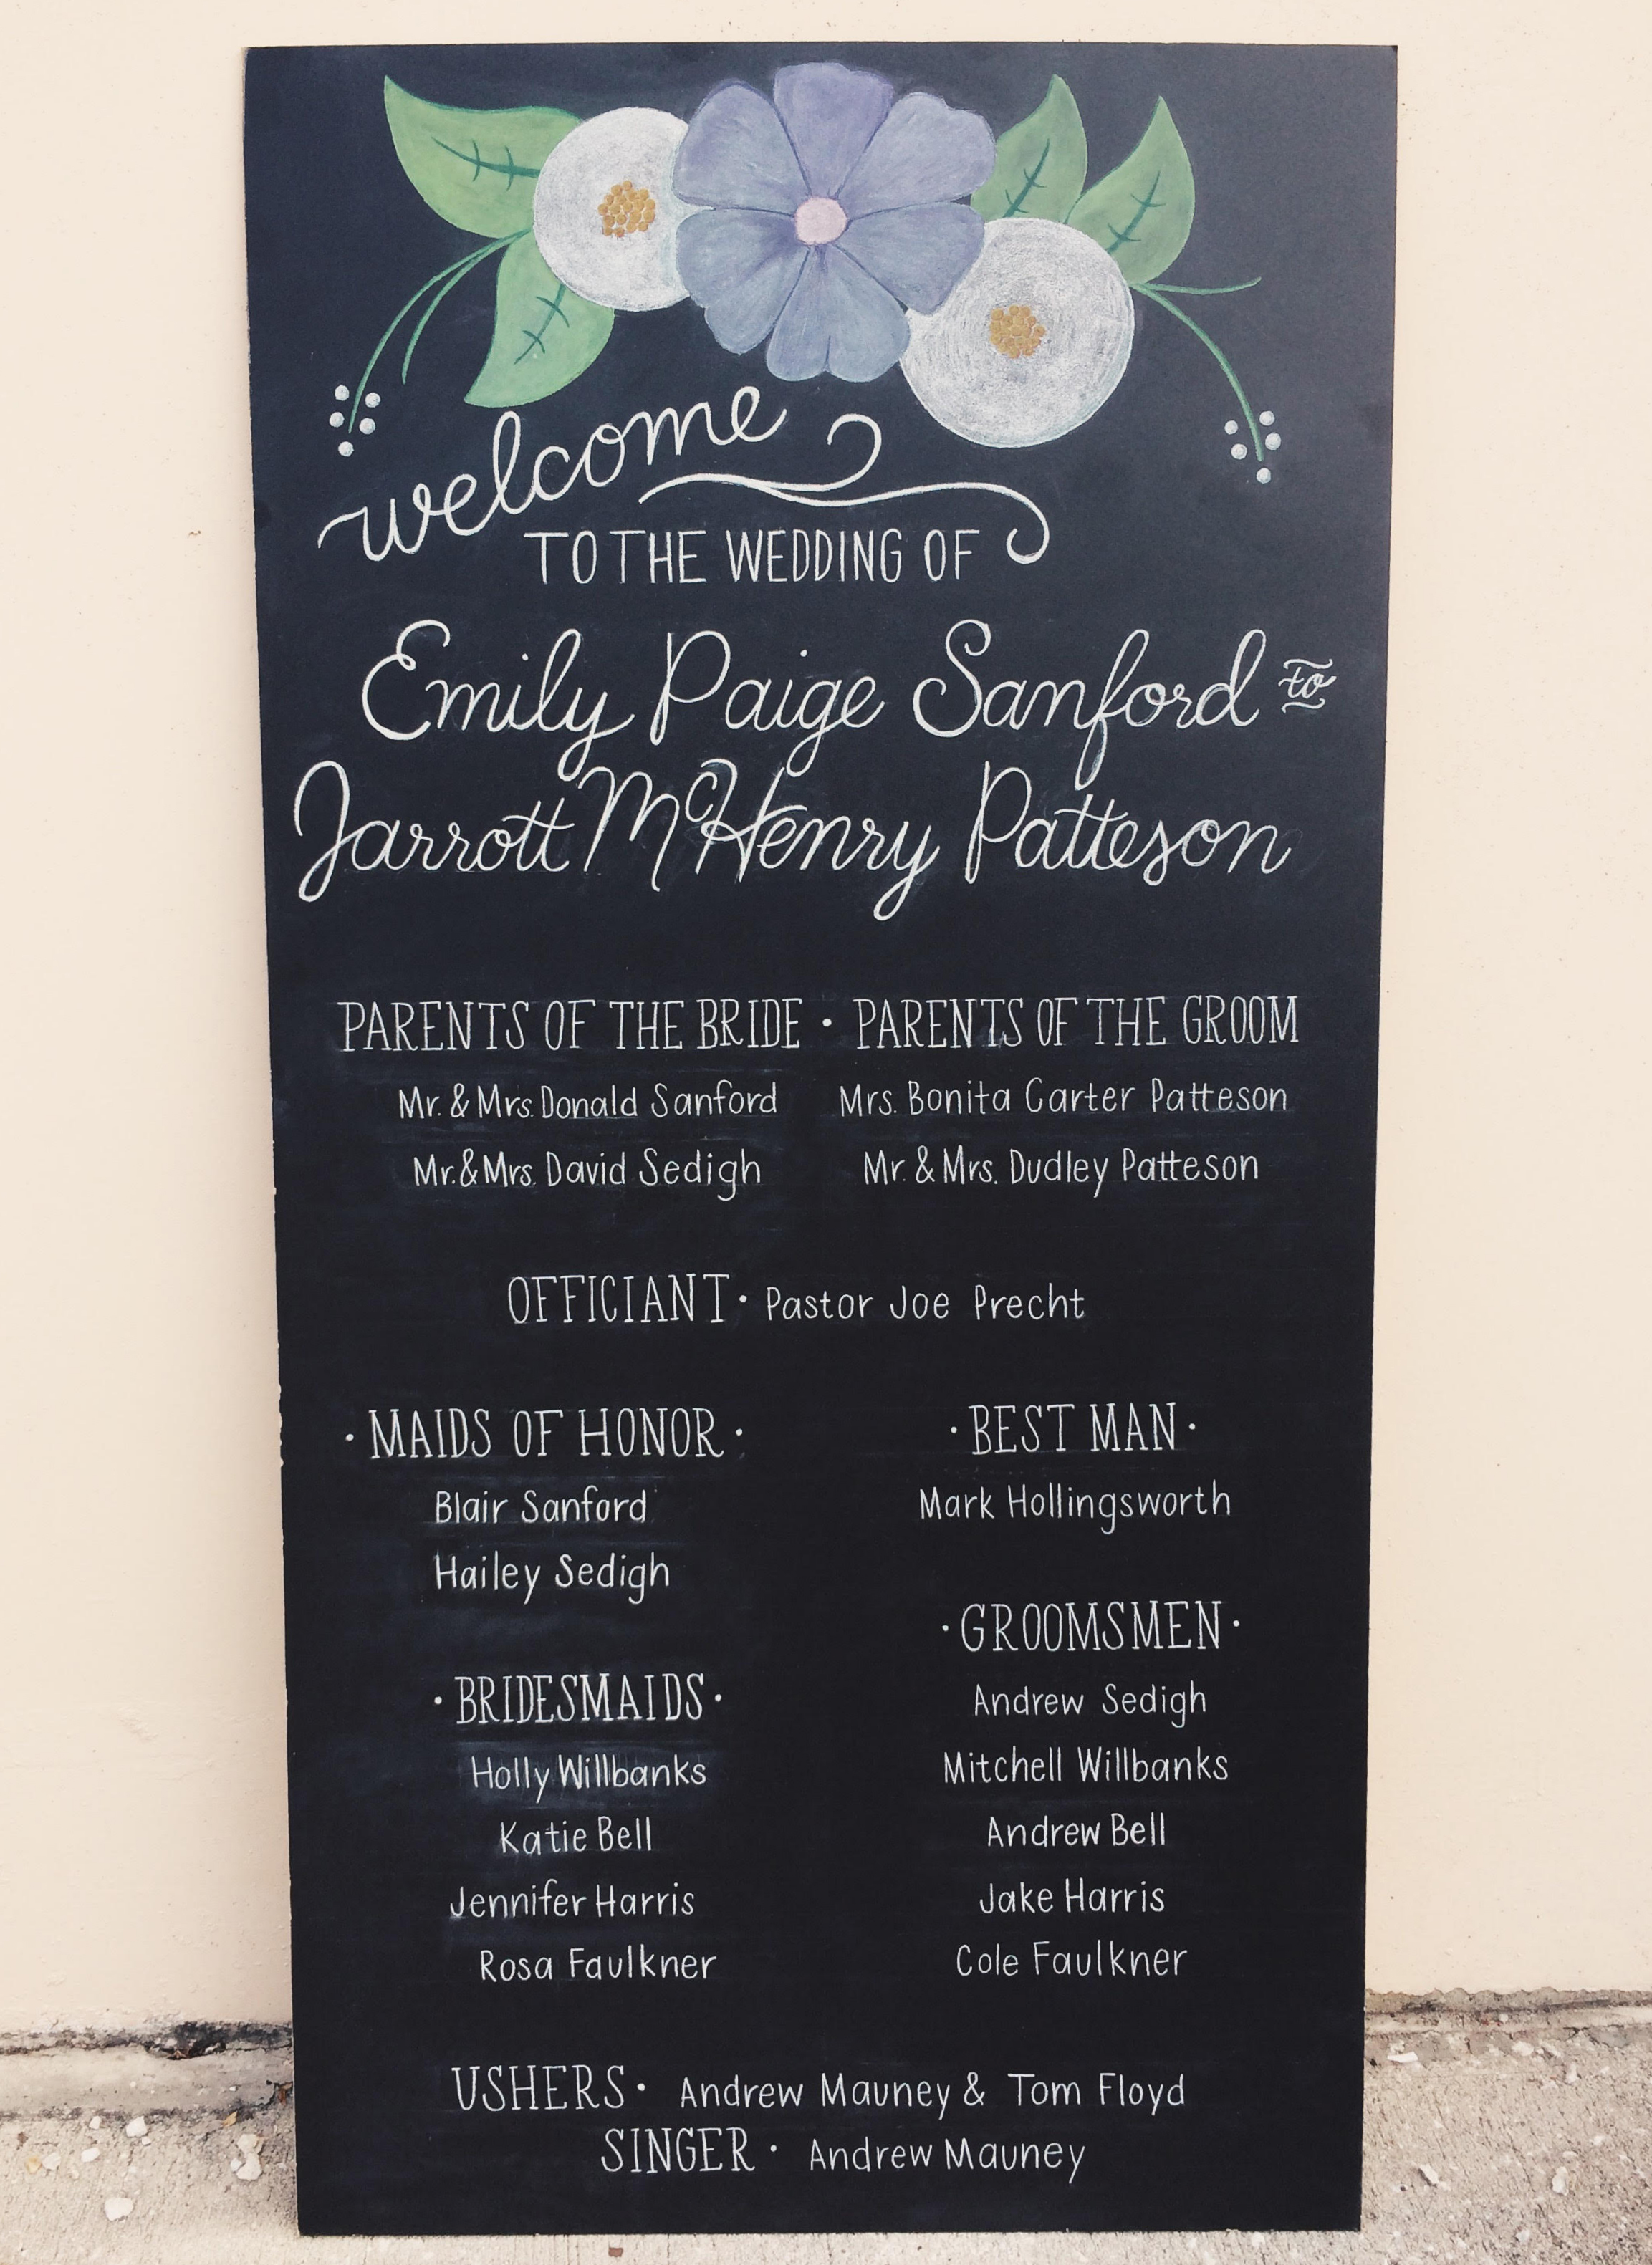 welcome
TO THE WEDDING OF
Emily Paige Sanford to
Jarrott McHenry Patteson
PARENTS OF THE BRIDE · PARENTS OF THE GROOM
Mr. & Mrs. Donald Sanford Mrs. Bonita Carter Patteson
Mr. & Mrs. David Sedigh Mr. & Mrs. Dudley Patteson
OFFICIANT · Pastor Joe Precht
· MAIDS OF HONOR ·
Blair Sanford
Hailey Sedigh
· BRIDESMAIDS ·
Holly Willbanks
Katie Bell
Jennifer Harris
Rosa Faulkner
· BEST MAN ·
Mark Hollingsworth
· GROOMSMEN ·
Andrew Sedigh
Mitchell Willbanks
Andrew Bell
Jake Harris
Cole Faulkner
USHERS · Andrew Mauney & Tom Floyd
SINGER · Andrew Mauney